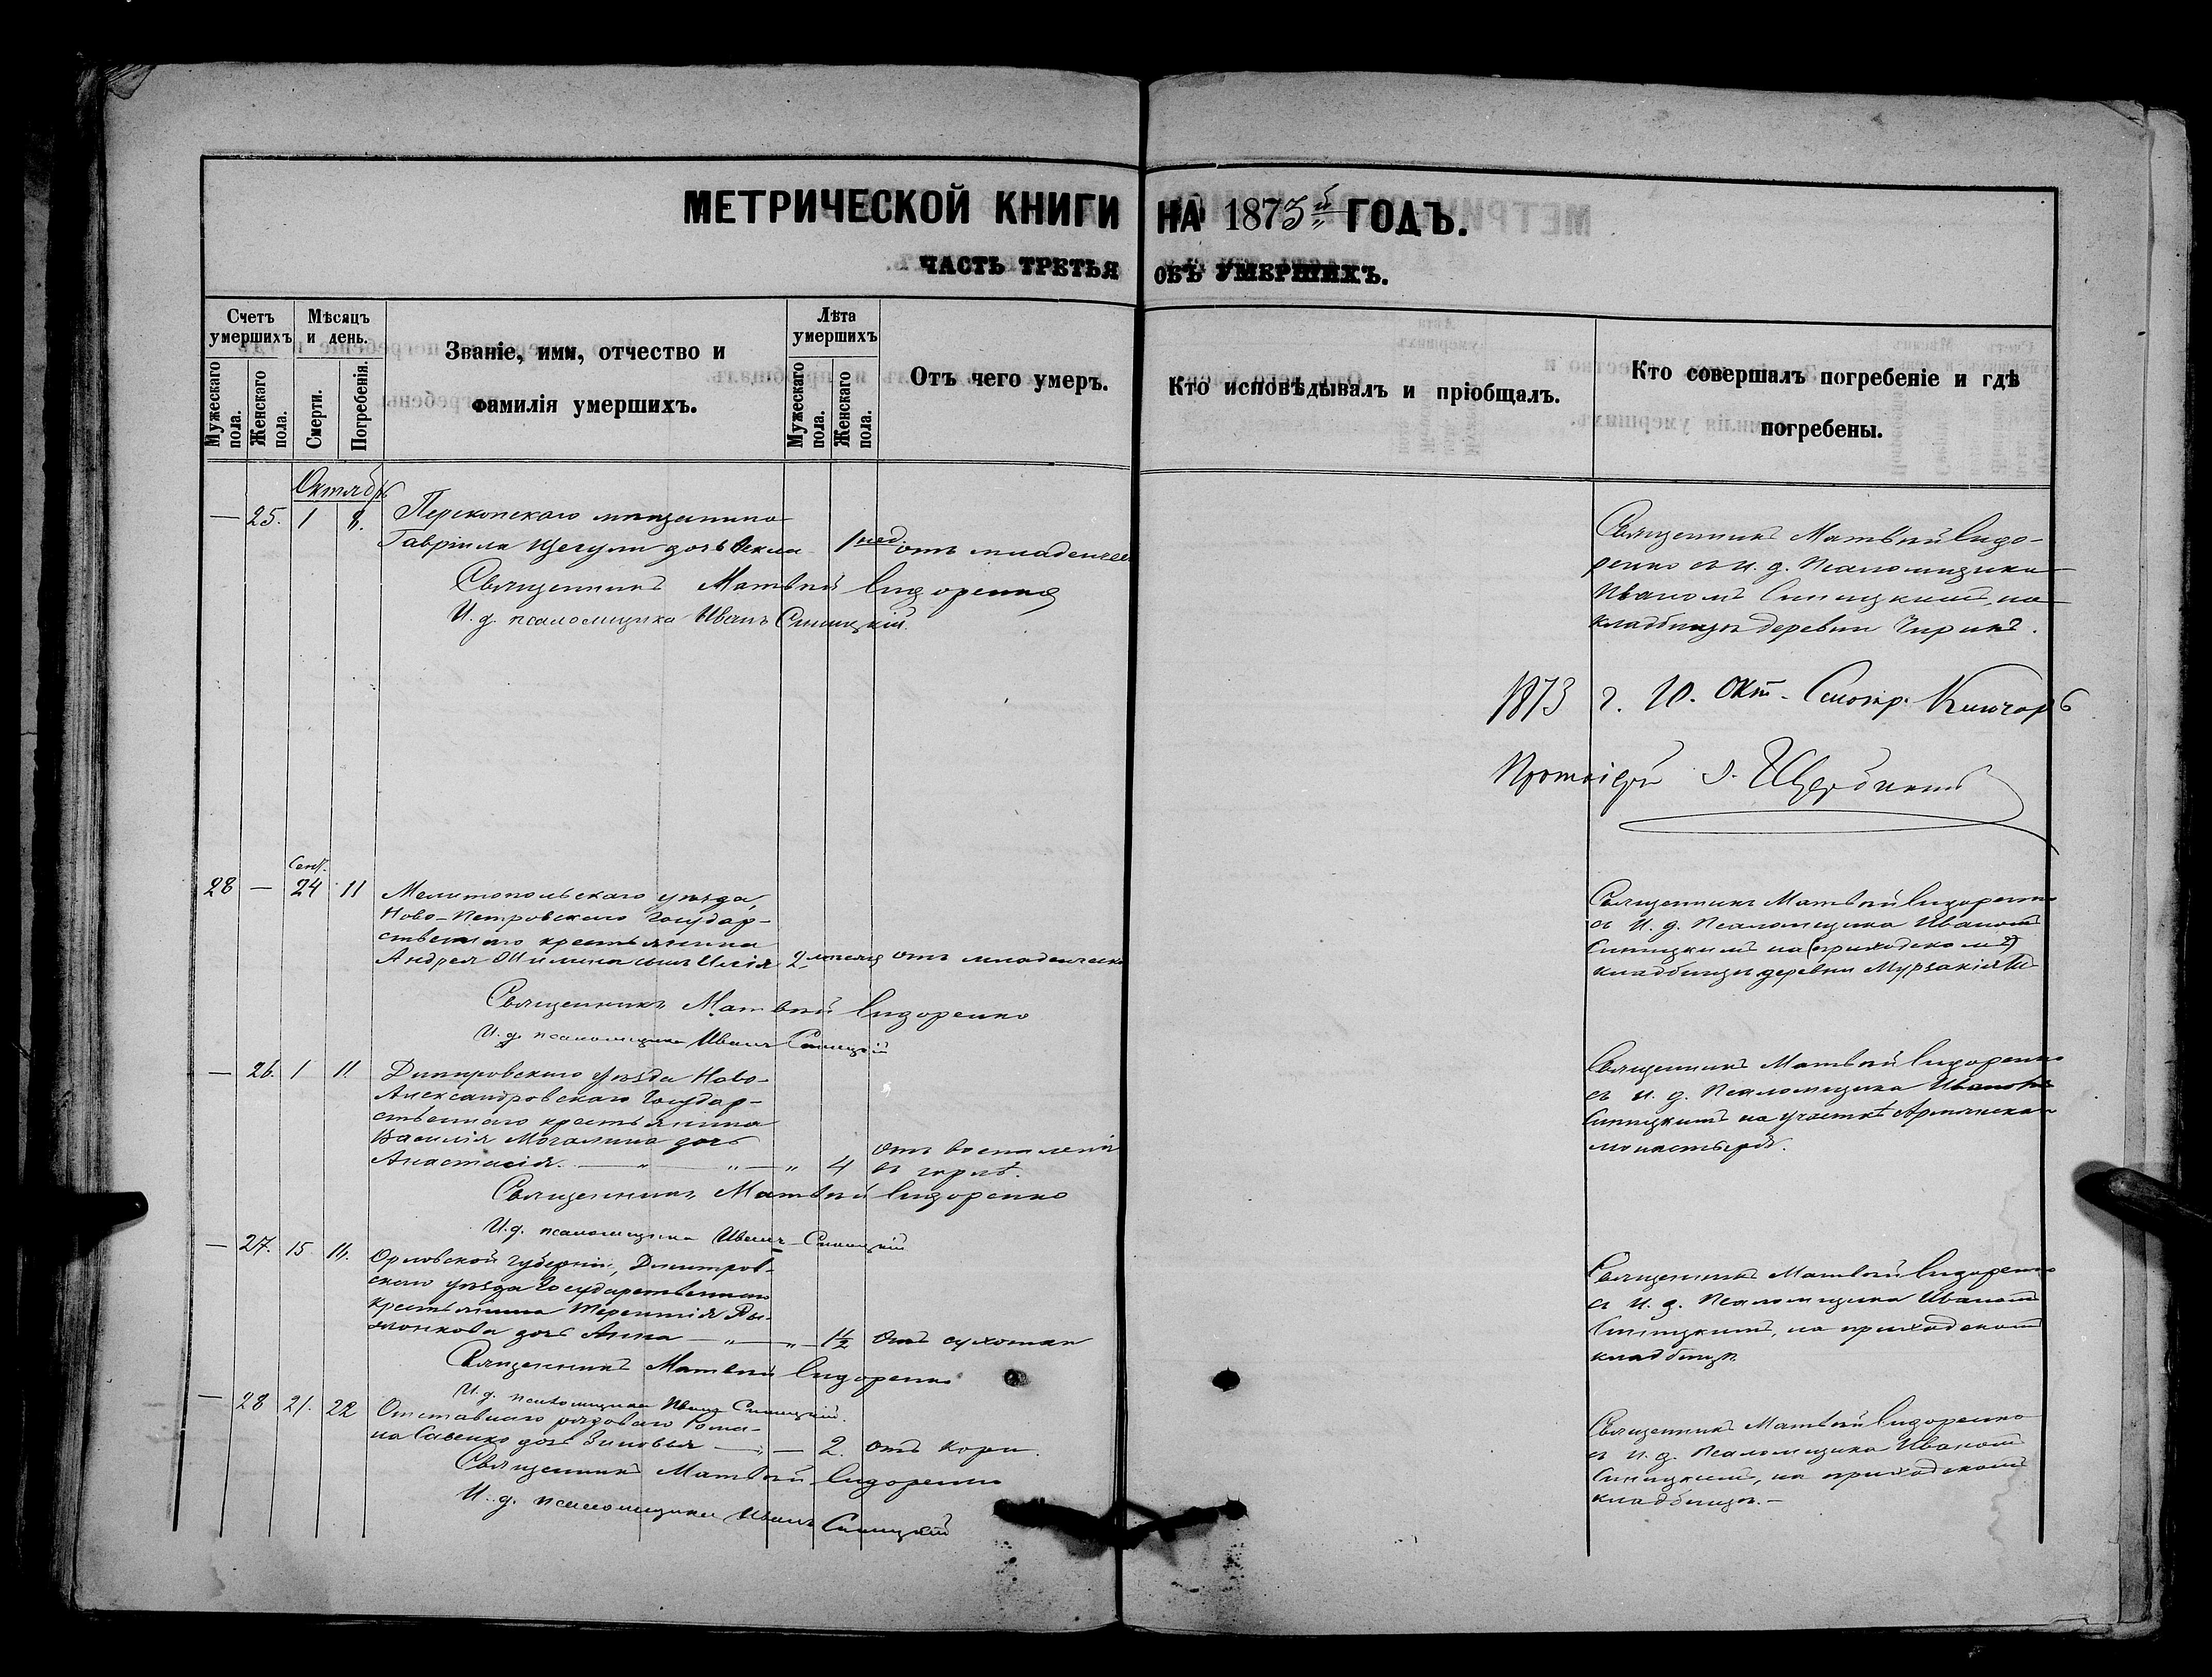 МЕТРИЧЕСКОЙ КНИГИ НА 1873й ГОДЪ.
ЧАСТЬ ТРЕТЬЯ ОБЪ УМЕРШИХЪ.
Счетъ умершихъ
Мѣсяцъ и день.
Званіе, имя, отчество и фамилія умершихъ.
Лѣта умершихъ
Отъ чего умеръ.
Кто исповѣдывалъ и пріобщалъ.
Кто совершалъ погребеніе и гдѣ погребены.
Мужескаго пола.
Женскаго пола.
Смерти.
Погребенія.
Мужескаго пола.
Женскаго пола.
Октябрь
— 25. 1 8. Перекопскаго мѣщанина
Гавріила дочь 1 нед. отъ младенческ
Священникъ Матвѣй Сидоренко
И. д. псаломщика Иванъ Синицкій.
Священникъ Матвѣй Сидо-
ренко съ и. д. Псаломщика
Иваномъ Синицкимъ, на
кладбищѣ деревни Чирикъ.
1873 г. 10. Окт.
Протоіерей
Сент.
28 — 24 11 Мелитопольскаго уѣзда,
Ново-Петровскаго Государ-
ственнаго крестьянина
Андрея сынъ Илія 2 мѣсяца отъ младенческ
Священникъ Матвѣй Сидоренко
И. д. псаломщика Иванъ Синицкій
Священникъ Матвѣй Сидоренко
съ И. д. Псаломщика Иваномъ
Синицкимъ на (приходскомъ)
кладбищѣ деревни
— 26. 1 11. Днѣпровскаго уѣзда Ново-
Александровскаго Государ-
ственнаго крестьянина
Василія дочь
Анастасія. — „ — „ — „ 4 отъ воспаленія
въ горлѣ.
Священникъ Матвѣй Сидоренко
И. д. псаломщика Иванъ Синицкій
Священникъ Матвѣй Сидоренко
съ и. д. Псаломщика Иваномъ
Синицкимъ на участкѣ Армянскаго
монастыря.
— 27. 15. 16. Орловской губерніи, Дмитров-
скаго уѣзда Государственнаго
крестьянина Терентія
дочь Анна — „ — „ — 1½ отъ сухотки
Священникъ Матвѣй Сидоренко
И. д. псаломщика Иванъ Синицкій.
Священникъ Матвѣй Сидоренко
съ И. д. Псаломщика Иваномъ
Синицкимъ, на приходскомъ
кладбищѣ.
— 28 21. 22 Отставнаго рядоваго Рома-
на Савенко дочь Зиновья — „ — 2. отъ кори.
Священникъ Матвѣй Сидоренко
И. д. псаломщика Иванъ Синицкій
Священникъ Матвѣй Сидоренко
съ И. д. Псаломщика Иваномъ
Синицкимъ, на приходскомъ
кладбищѣ. —